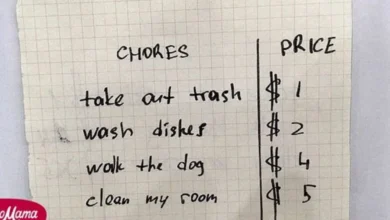 CHORES PRICE
take out trash $ 1
wash dishes $ 2
walk the dog $ 4
clean my room $ 5
Mama